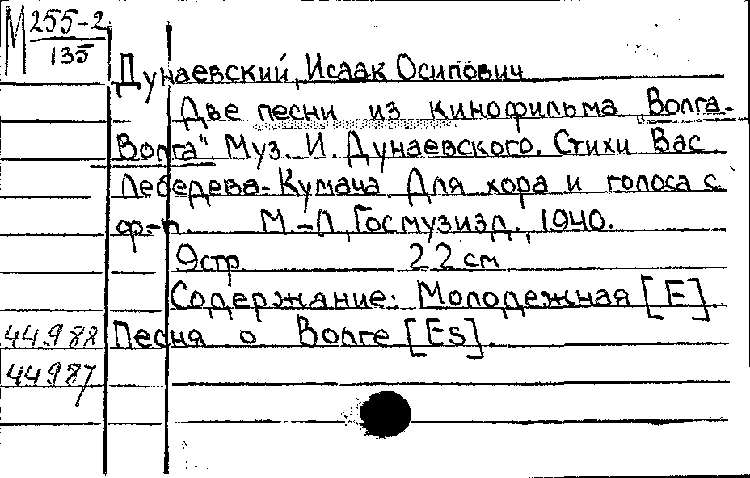 М 255-2
135
Дунаевский, Исаак Осипович
Две песни из кинофильма „Волга-
Волга" Муз. И. Дунаевского. Стихи Вас
Лебедева-Кумача Для хора и голоса с
ф.-п. М.-Л, Госмузизд., 1940.
9стр 22 см
Содержание: Молодежная [E].
44988 Песня о Волге [Es].
44987